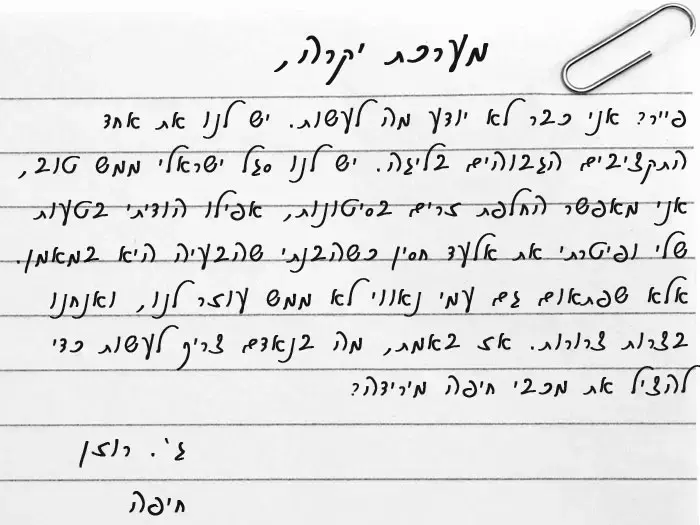 מערכת יקרה,
פייר? אני כבר לא יודע מה לעשות. יש לנו את אחד
התקציבים הגבוהים בליגה. יש לנו סגל ישראלי ממש טוב,
אני מאפשר החלפת זרים בסיטונות, אפילו הודיתי בטעות
שלי ופיטרתי את אלעד חסין כשהבנתי שהבעיה היא במאמן.
אלא שפתאום גם עמי נאווי לא ממש עוזר לנו, ואנחנו
בצרות צרורות. אז באמת, מה בנאדם צריך לעשות כדי
להציל את מכבי חיפה מירידה?
ג'. רוזן
חיפה